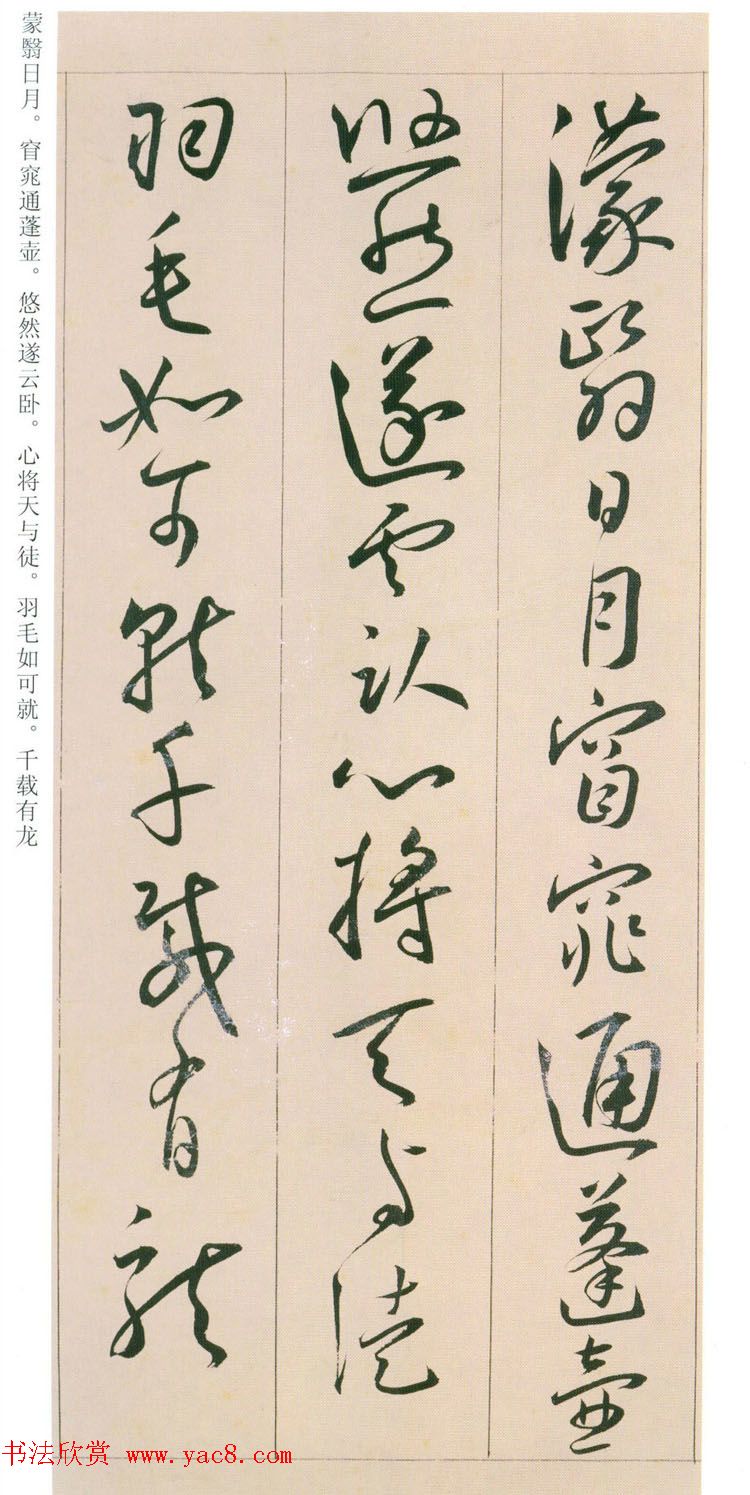 濛翳日月窅窕通蓬壺
悠然遂雲臥心將天与徒
羽毛如可就千載有龍
蒙翳日月。窅窕通蓬壶。悠然遂云卧。心将天与徒。羽毛如可就。千载有龙
书法欣赏 www.yac8.com